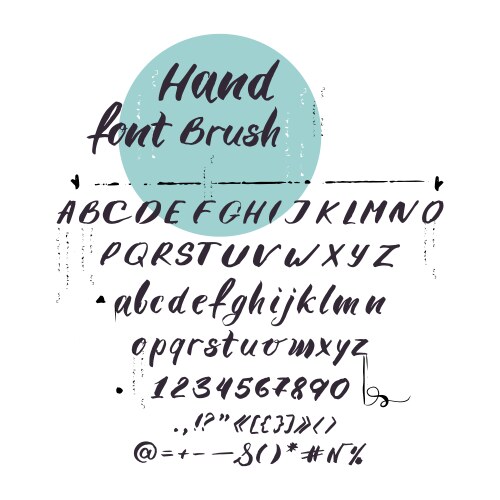 Hand
font Brush
A B C D E F G H I J K L M N O
P Q R S T U V W X Y Z
a b c d e f g h i j k l m n
o p q r s t u v w x y z
1 2 3 4 5 6 7 8 9 0
. , ! ? " « [ { } ] » ( )
@ = + - — S ( ) * # N %